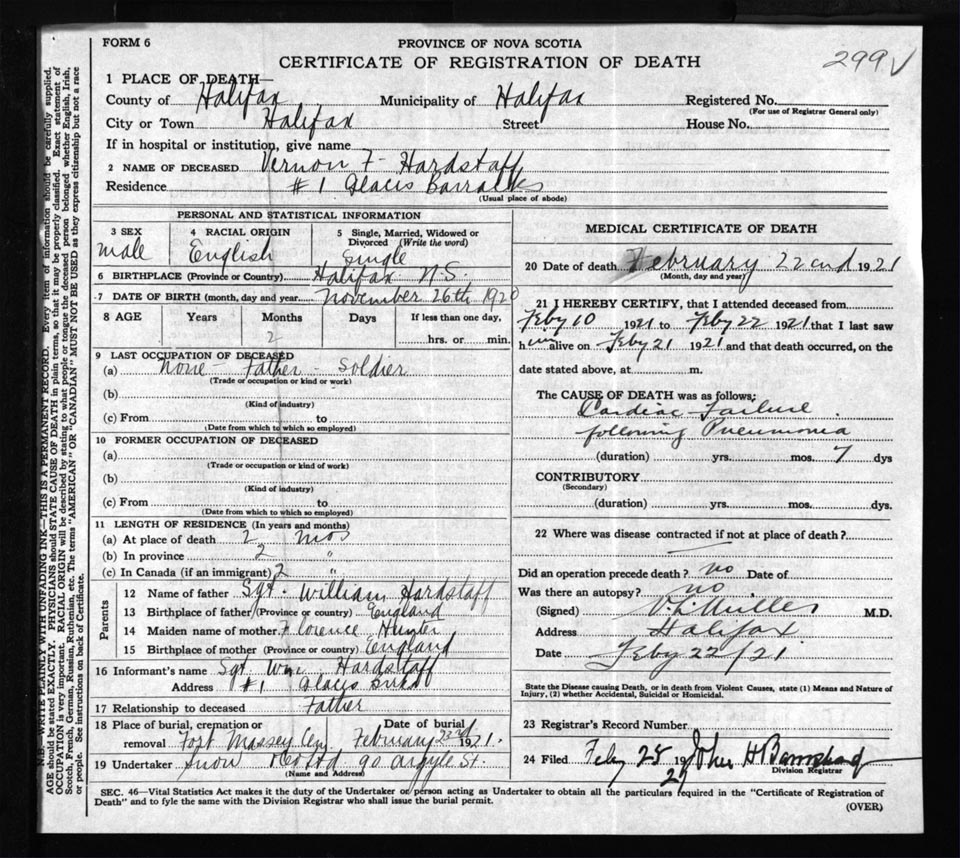 FORM 6
PROVINCE OF NOVA SCOTIA
CERTIFICATE OF REGISTRATION OF DEATH
299
1 PLACE OF DEATH—
County of Halifax Municipality of Halifax Registered No.
(For use of Registrar General only)
City or Town Halifax Street House No.
If in hospital or institution, give name
2 NAME OF DECEASED Vernon F- Hardstaff
Residence #1 Glacis Barracks
(Usual place of abode)
PERSONAL AND STATISTICAL INFORMATION
3 SEX 4 RACIAL ORIGIN 5 Single, Married, Widowed or Divorced (Write the word)
male English Single
6 BIRTHPLACE (Province or Country) Halifax N.S.
7 DATE OF BIRTH (month, day and year) November 26th 1920
8 AGE Years Months Days If less than one day,
2 hrs. or min.
9 LAST OCCUPATION OF DECEASED
(a) None - Father - Soldier
(Trade or occupation or kind or work)
(b)
(Kind of industry)
(c) From to
(Date from which to which so employed)
10 FORMER OCCUPATION OF DECEASED
(a)
(Trade or occupation or kind of work)
(b)
(Kind of industry)
(c) From to
(Date from which to which so employed)
11 LENGTH OF RESIDENCE (In years and months)
(a) At place of death 2 mos
(b) In province 2 "
(c) In Canada (if an immigrant) 2 "
Parents
12 Name of father Sgt. William Hardstaff
13 Birthplace of father (Province or country) England
14 Maiden name of mother Florence Hunter
15 Birthplace of mother (Province or country) England
16 Informant's name Sgt Wm Hardstaff
Address #1 Glacis Bricks
17 Relationship to deceased Father
18 Place of burial, cremation or removal Fort Massey Cem Date of burial February 23rd 1921.
19 Undertaker Snow & Co Ltd 90 Argyle St.
(Name and Address)
MEDICAL CERTIFICATE OF DEATH
20 Date of death February 22nd 1921
(Month, day and year)
21 I HEREBY CERTIFY, that I attended deceased from
Feby 10 1921 to Feby 22 1921 that I last saw
him alive on Feby 21 1921 and that death occurred, on the
date stated above, at m.
The CAUSE OF DEATH was as follows;
Cardiac Failure
following Pneumonia
(duration) yrs. mos. 7 dys
CONTRIBUTORY
(Secondary)
(duration) yrs. mos. dys.
22 Where was disease contracted if not at place of death?
Did an operation precede death? no Date of
Was there an autopsy? no
(Signed) M.D.
Address Halifax
Date Feby 22/21
State the Disease causing Death, or in death from Violent Causes, state (1) Means and Nature of
Injury, (2) whether Accidental, Suicidal or Homicidal.
23 Registrar's Record Number
24 Filed Feby 25 19 21 John H
Division Registrar
SEC. 46—Vital Statistics Act makes it the duty of the Undertaker or person acting as Undertaker to obtain all the particulars required in the "Certificate of Registration of
Death" and to fyle the same with the Division Registrar who shall issue the burial permit.
(OVER)
N.B.—WRITE PLAINLY WITH UNFADING INK—THIS IS A PERMANENT RECORD. Every item of information should be carefully supplied.
AGE should be stated EXACTLY. PHYSICIANS should STATE CAUSE OF DEATH in plain terms, so that it may be properly classified. Exact statement of
OCCUPATION is very important. RACIAL ORIGIN will be described by stating to what people or tongue the deceased person belonged whether English, Irish,
Scotch, French, German, Russian, Ruthenian, etc. The terms "AMERICAN" OR "CANADIAN" MUST NOT BE USED as they express citizenship but not a race
or people. See instructions on back of Certificate.